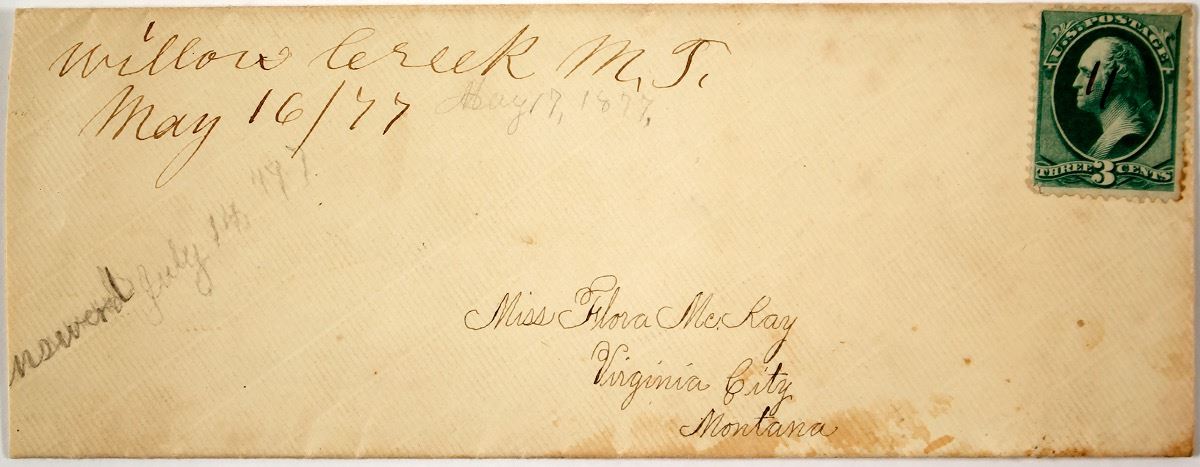 Willow Creek M.T.
May 16/77
May 17, 1877,
nswerd July 14, '77
U.S. POSTAGE
11
THREE 3 CENTS
Miss Flora McKay
Virginia City
Montana